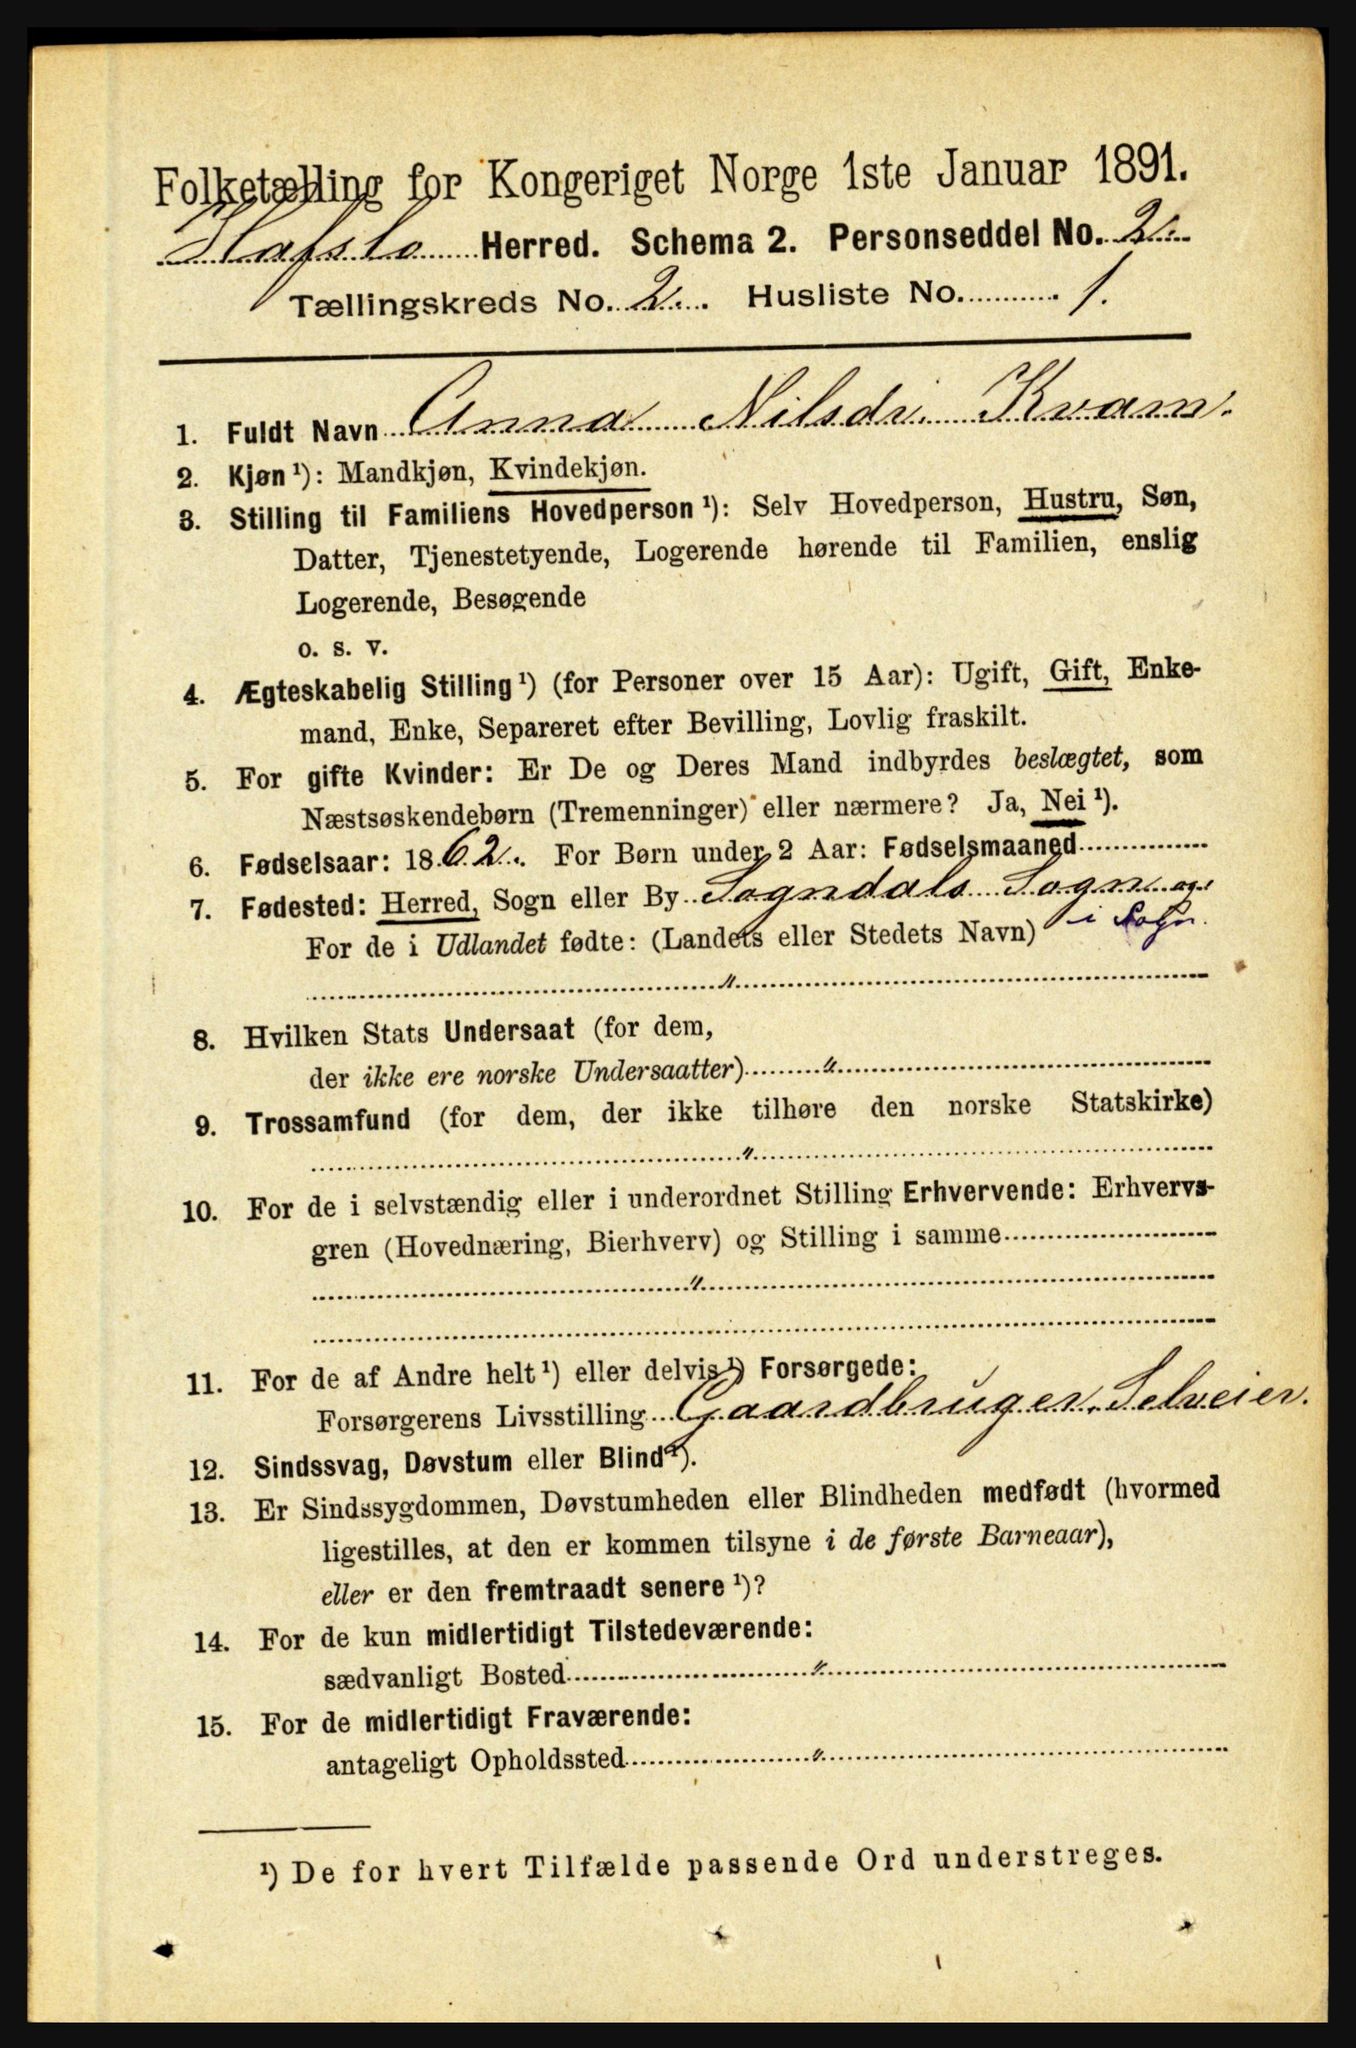 Folketælling for Kongeriget Norge 1ste Januar 1891.
Hafslo Herred. Schema 2. Personseddel No. 2.
Tællingskreds No. 2. Husliste No. 1.
1. Fuldt Navn Anna Nilsdr. Kvam.
2. Kjøn ¹): Mandkjøn, Kvindekjøn.
3. Stilling til Familiens Hovedperson ¹): Selv Hovedperson, Hustru, Søn,
Datter, Tjenestetyende, Logerende hørende til Familien, enslig
Logerende, Besøgende
o. s. v.
4. Ægteskabelig Stilling ¹) (for Personer over 15 Aar): Ugift, Gift, Enke-
mand, Enke, Separeret efter Bevilling, Lovlig fraskilt.
5. For gifte Kvinder: Er De og Deres Mand indbyrdes beslægtet, som
Næstsøskendebørn (Tremenninger) eller nærmere? Ja, Nei ¹).
6. Fødselsaar: 1862. For Børn under 2 Aar: Fødselsmaaned
7. Fødested: Herred, Sogn eller By Sogndals Sogn
i Sogn.
For de i Udlandet fødte: (Landets eller Stedets Navn)
"
8. Hvilken Stats Undersaat (for dem,
der ikke ere norske Undersaatter) "
9. Trossamfund (for dem, der ikke tilhøre den norske Statskirke)
"
10. For de i selvstændig eller i underordnet Stilling Erhvervende: Erhvervs-
gren (Hovednæring, Bierhverv) og Stilling i samme
"
11. For de af Andre helt ¹) eller delvis ¹) Forsørgede:
Forsørgerens Livsstilling Gaardbruger. Selveier.
12. Sindssvag, Døvstum eller Blind ¹).
13. Er Sindssygdommen, Døvstumheden eller Blindheden medfødt (hvormed
ligestilles, at den er kommen tilsyne i de første Barneaar),
eller er den fremtraadt senere ¹)?
14. For de kun midlertidigt Tilstedeværende:
sædvanligt Bosted "
15. For de midlertidigt Fraværende:
antageligt Opholdssted "
¹) De for hvert Tilfælde passende Ord understreges.